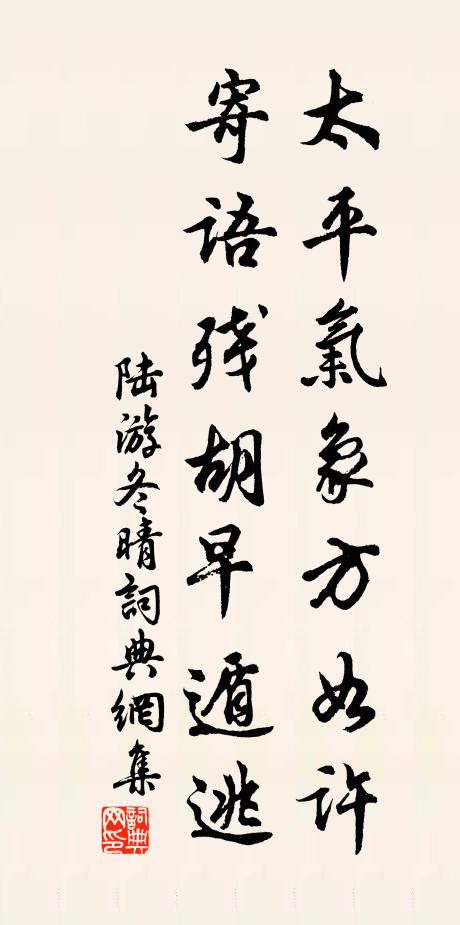 太平氣象方如許
寄語残胡早遁逃
陆游冬晴詞典網集
詞典网印